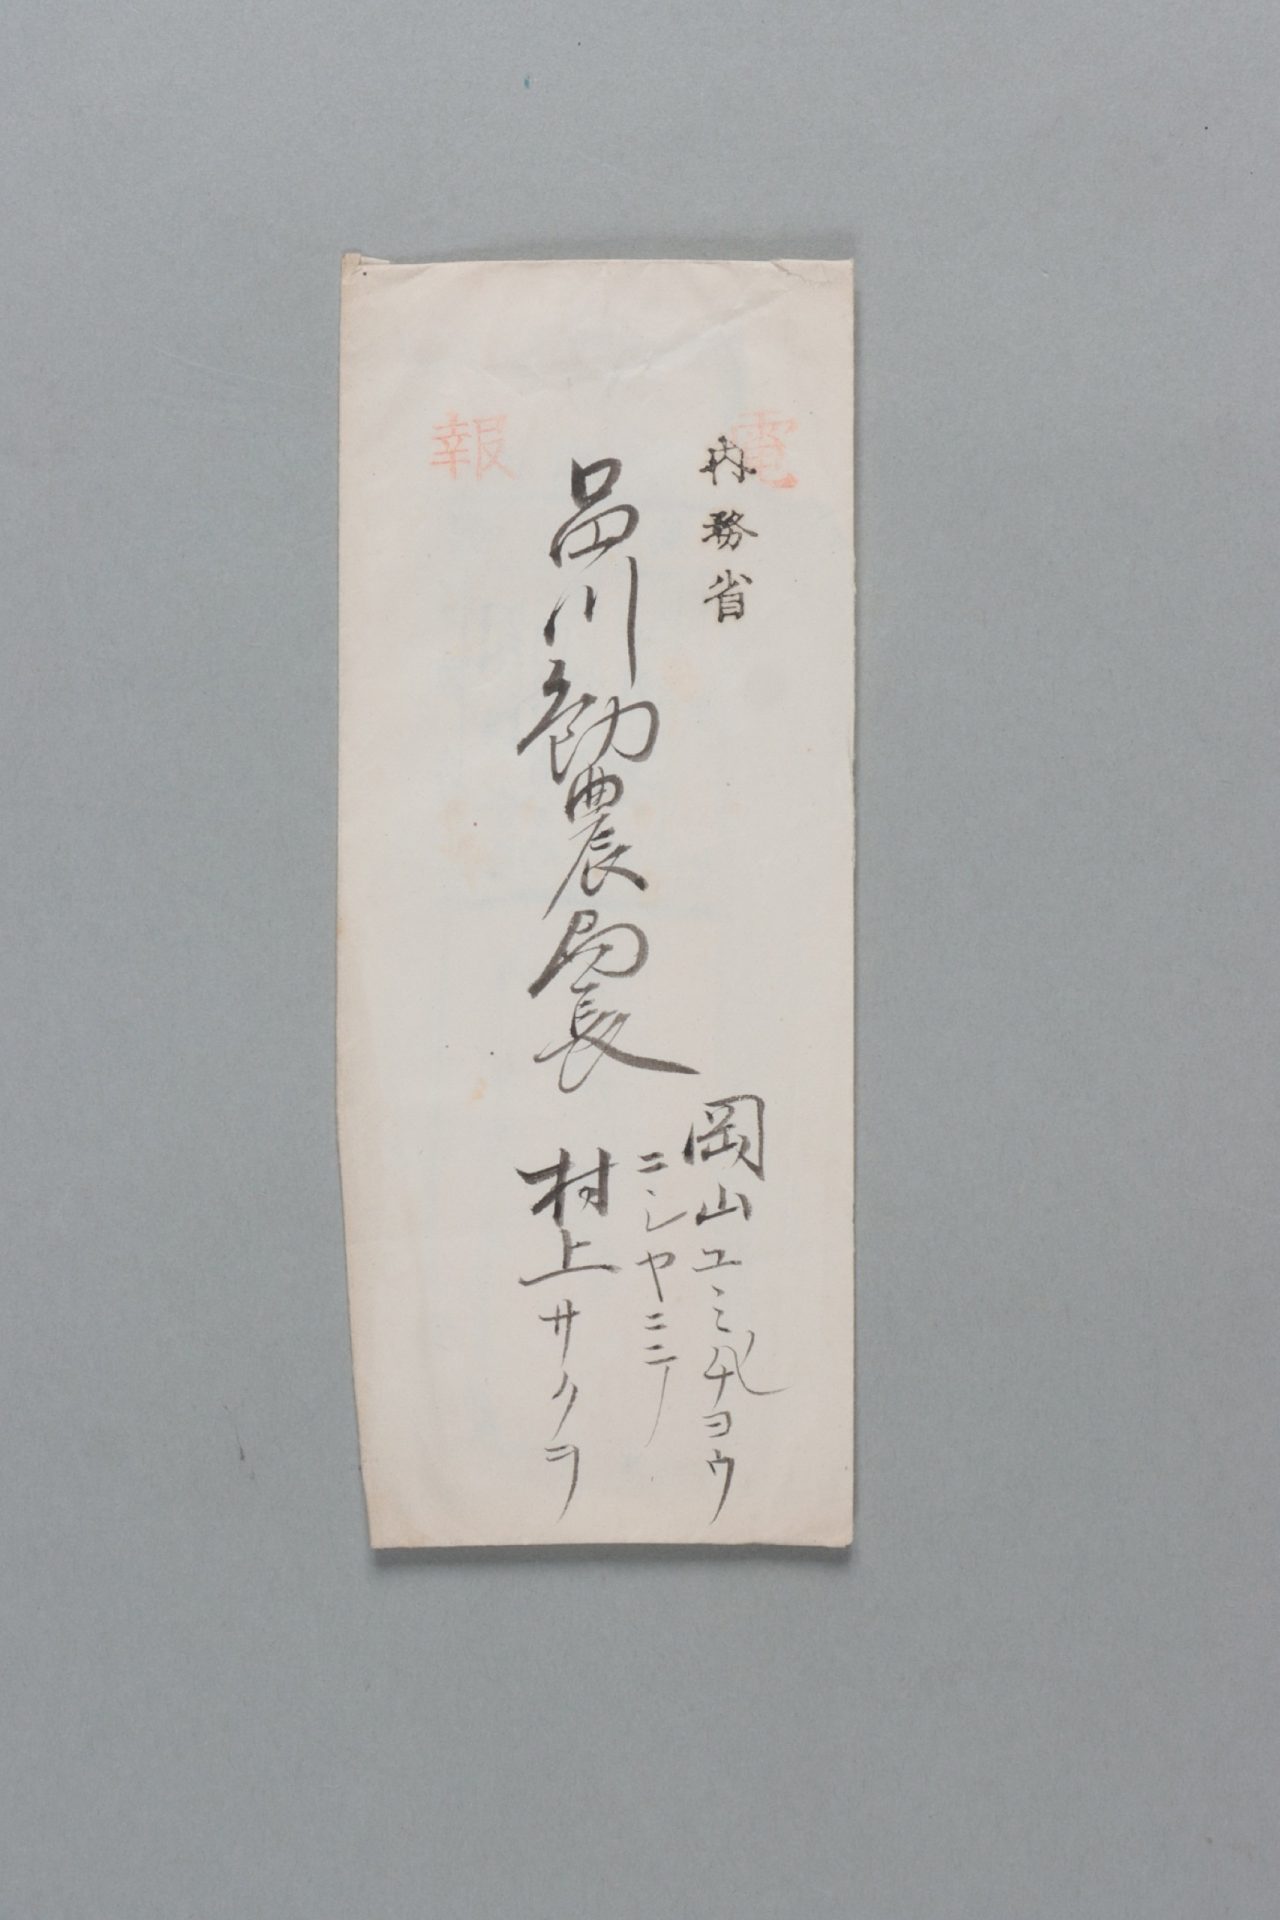 電報
内務省
品川勧農局長
岡山ユミ之チヨウ
ニシヤニテ
村上サクヲ